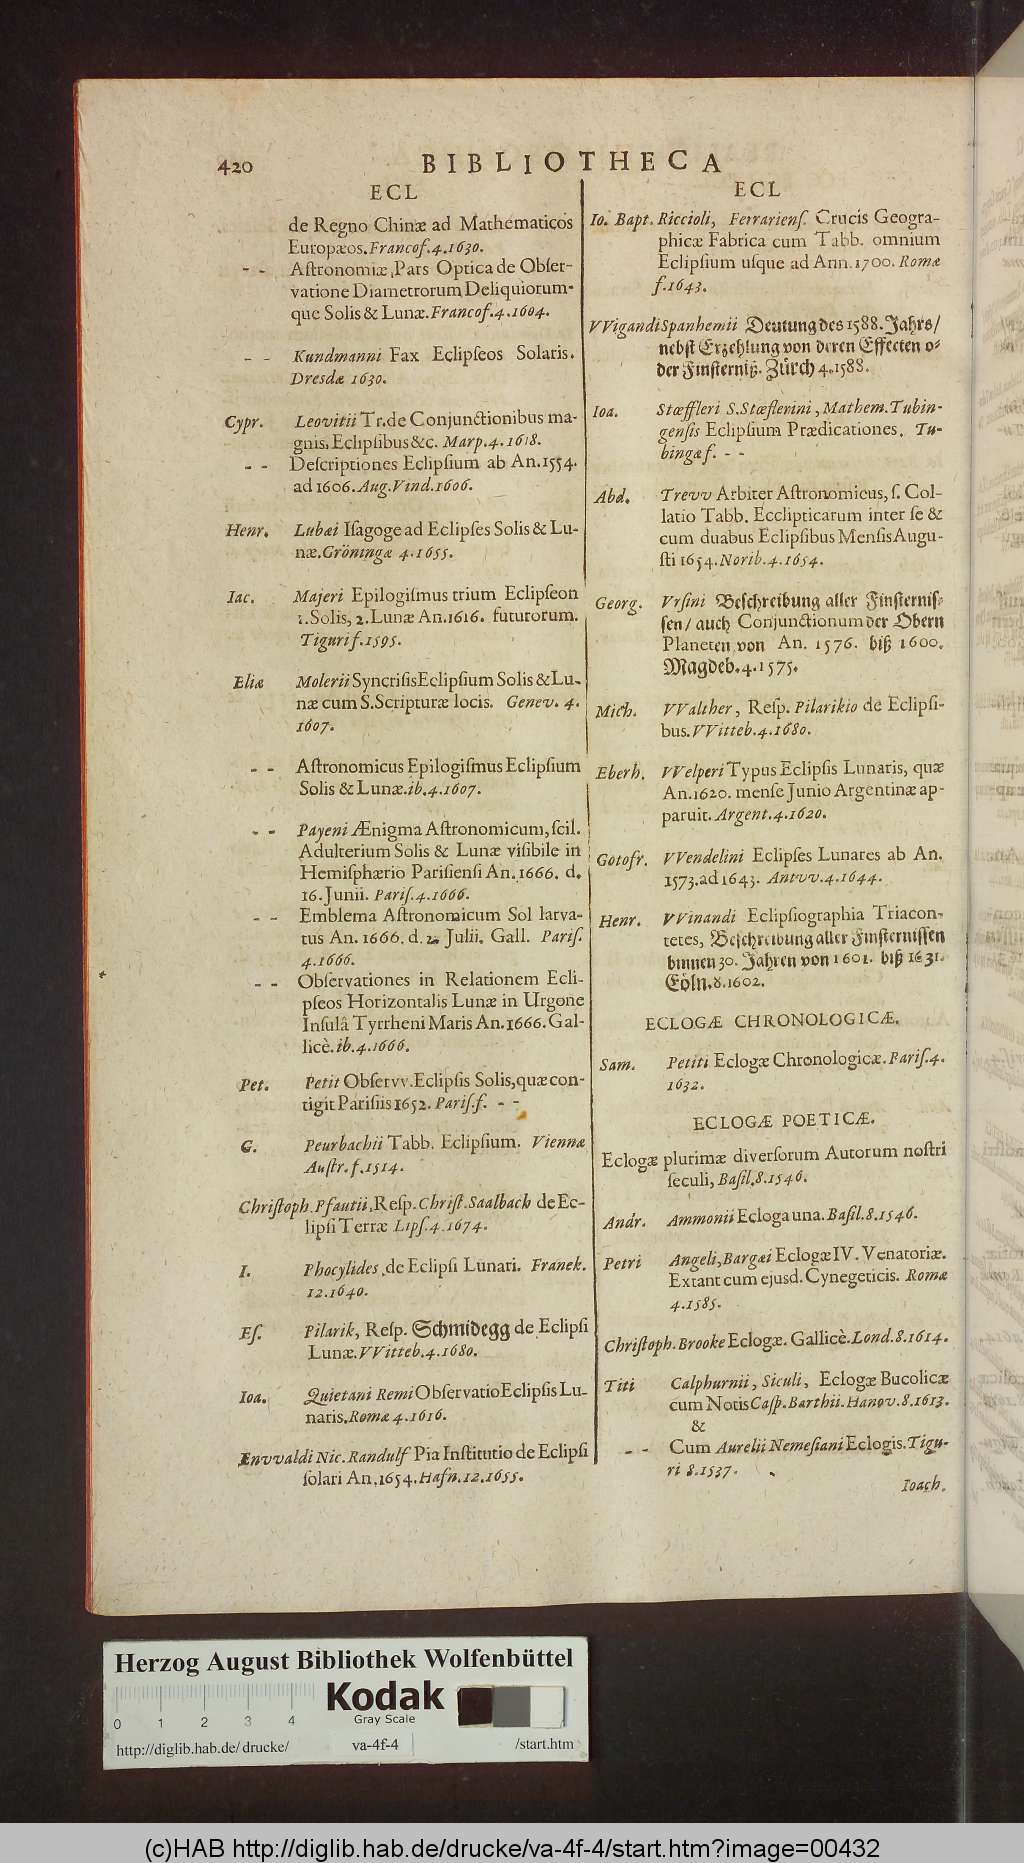 420
BIBLIOTHECA
ECL
de Regno Chinæ ad Mathematicos
Europæos. Francof. 4. 1630.
- - Aſtronomiæ Pars Optica de Obſer-
vatione Diametrorum Deliquiorum-
que Solis & Lunæ. Francof. 4. 1604.
- - Kundmanni Fax Eclipſeos Solaris.
Dresdæ 1630.
Cypr. Leovitii Tr. de Conjunctionibus ma-
gnis, Eclipſibus &c. Marp. 4. 1618.
- - Deſcriptiones Eclipſium ab An. 1554.
ad 1606. Aug. Vind. 1606.
Henr. Lubæi Iſagoge ad Eclipſes Solis & Lu-
næ. Gröningæ 4. 1655.
Iac. Majeri Epilogiſmus trium Eclipſeon
1. Solis, 2. Lunæ An. 1616. futurorum.
Tiguri f. 1595.
Eliæ Molerii Syncriſis Eclipſium Solis & Lu-
næ cum S. Scripturæ locis. Genev. 4.
1607.
- - Aſtronomicus Epilogiſmus Eclipſium
Solis & Lunæ. ib. 4. 1607.
- - Payeni Ænigma Aſtronomicum, ſcil.
Adulterium Solis & Lunæ viſibile in
Hemiſphærio Pariſienſi An. 1666. d.
16. Junii. Pariſ. 4. 1666.
- - Emblema Aſtronomicum Sol larva-
tus An. 1666. d. 2. Julii. Gall. Pariſ.
4. 1666.
- - Obſervationes in Relationem Ecli-
pſeos Horizontalis Lunæ in Urgone
Inſulâ Tyrrheni Maris An. 1666. Gal-
licè. ib. 4. 1666.
Pet. Petit Obſervv. Eclipſis Solis, quæ con-
tigit Pariſiis 1652. Pariſ. f. - -
G. Peurbachii Tabb. Eclipſium. Viennæ
Auſtr. f. 1514.
Chriſtoph. Pfautii, Reſp. Chriſt. Saalbach de Ec-
lipſi Terræ Lipſ. 4. 1674.
I. Phocylides de Eclipſi Lunari. Franek.
12. 1640.
Eſ. Pilarik, Reſp. Schmidegg de Eclipſi
Lunæ. VVitteb. 4. 1680.
Ioa. Quietani Remi Obſervatio Eclipſis Lu-
naris. Romæ 4. 1616.
Envvaldi Nic. Randulf Pia Inſtitutio de Eclipſi
ſolari An. 1654. Hafn. 12. 1655.
ECL
Io. Bapt. Riccioli, Ferrarienſ. Crucis Geogra-
phicæ Fabrica cum Tabb. omnium
Eclipſium uſque ad Ann. 1700. Romæ
f. 1643.
VVigandi Spanhemii Deutung des 1588. Jahrs/
nebſt Erzehlung von deren Effecten o-
der Finſterniß. Zürch 4. 1588.
Ioa. Stœffleri S. Stœflerini, Mathem. Tubin-
genſis Eclipſium Prædicationes. Tu-
bingæ f. - -
Abd. Trevv Arbiter Aſtronomicus, ſ. Col-
latio Tabb. Ecclipticarum inter ſe &
cum duabus Eclipſibus Menſis Augu-
ſti 1654. Norib. 4. 1654.
Georg. Vrſini Beſchreibung aller Finſterniſ-
ſen/ auch Conjunctionum der Obern
Planeten von An. 1576. biß 1600.
Magdeb. 4. 1575.
Mich. VValther, Reſp. Pilarikio de Eclipſi-
bus. VVitteb. 4. 1680.
Eberh. VVelperi Typus Eclipſis Lunaris, quæ
An. 1620. menſe Junio Argentinæ ap-
paruit. Argent. 4. 1620.
Gotofr. VVendelini Eclipſes Lunares ab An.
1573. ad 1643. Antvv. 4. 1644.
Henr. VVinandi Eclipſiographia Triacon-
tetes, Beſchreibung aller Finſterniſſen
binnen 30. Jahren von 1601. biß 1631.
Cöln. 8. 1602.
ECLOGÆ CHRONOLOGICÆ.
Sam. Petiti Eclogæ Chronologicæ. Pariſ. 4.
1632.
ECLOGÆ POETICÆ.
Eclogæ plurimæ diverſorum Autorum noſtri
ſeculi, Baſil. 8. 1546.
Andr. Ammonii Ecloga una. Baſil. 8. 1546.
Petri Angeli, Bargæi Eclogæ IV. Venatoriæ.
Extant cum ejusd. Cynegeticis. Romæ
4. 1585.
Chriſtoph. Brooke Eclogæ. Gallicè. Lond. 8. 1614.
Titi Calphurnii, Siculi, Eclogæ Bucolicæ
cum Notis Caſp. Barthii. Hanov. 8. 1613.
&
- - Cum Aurelii Nemeſiani Eclogis. Tigu-
ri 8. 1537.
Ioach.
Herzog August Bibliothek Wolfenbüttel
Kodak
Gray Scale
0 1 2 3 4
http://diglib.hab.de/drucke/ va-4f-4 /start.htm
(c)HAB http://diglib.hab.de/drucke/va-4f-4/start.htm?image=00432